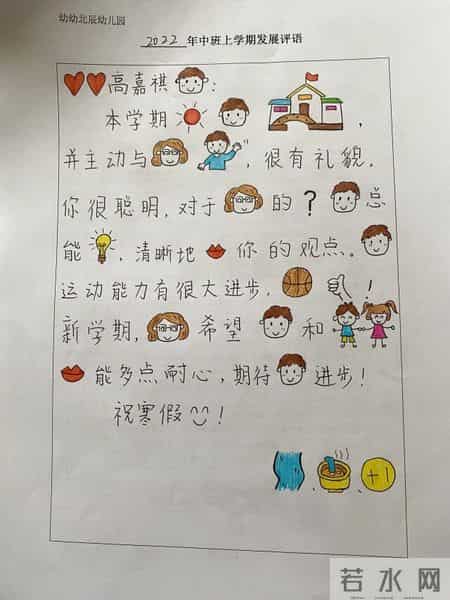 幼幼北辰幼儿园
2022 年中班上学期发展评语
高嘉祺:
本学期,
并主动与,很有礼貌.
你很聪明,对于的?总
能,清晰地你的观点.
运动能力有很大进步,!
新学期,希望和
能多点耐心,期待进步!
祝寒假!
+1
若水网